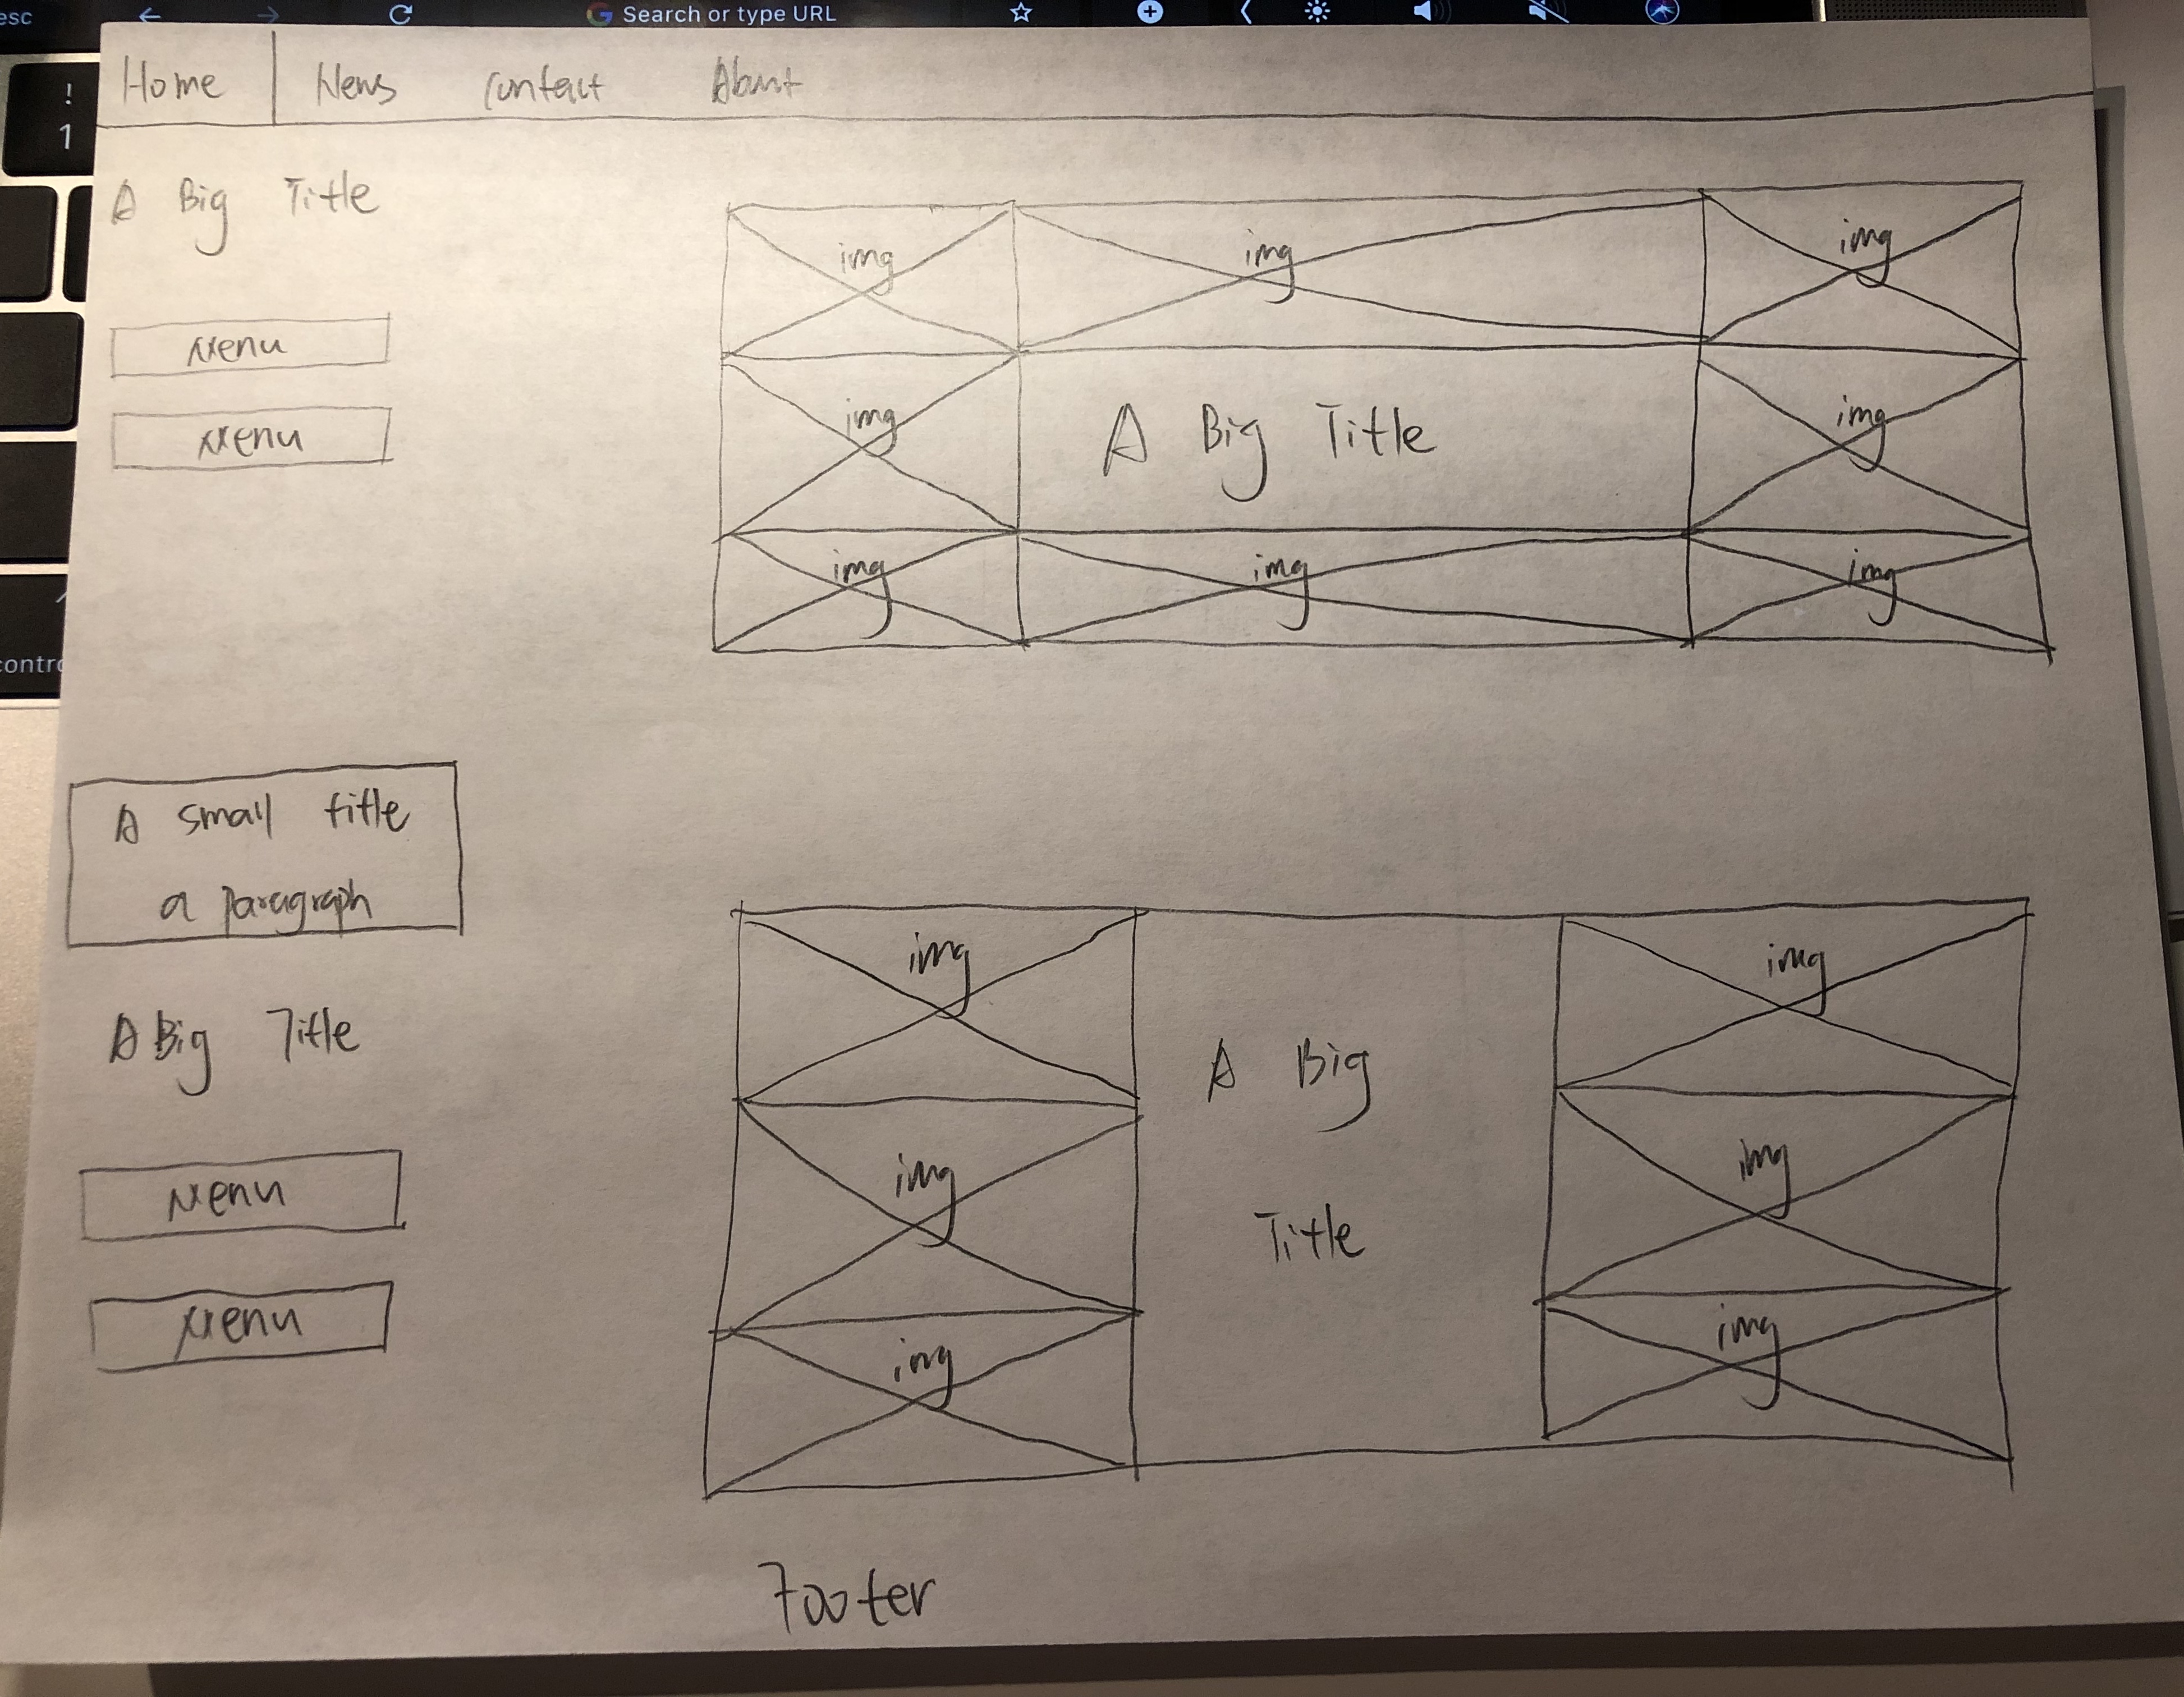 esc
Search or type URL
!
1
contro
Home News Contact About
A Big Title
Menu
Menu
img img img
img A Big Title img
img img img
A small title
a paragraph
A Big Title
Menu
Menu
img img
A Big
img img
Title
img img
Footer